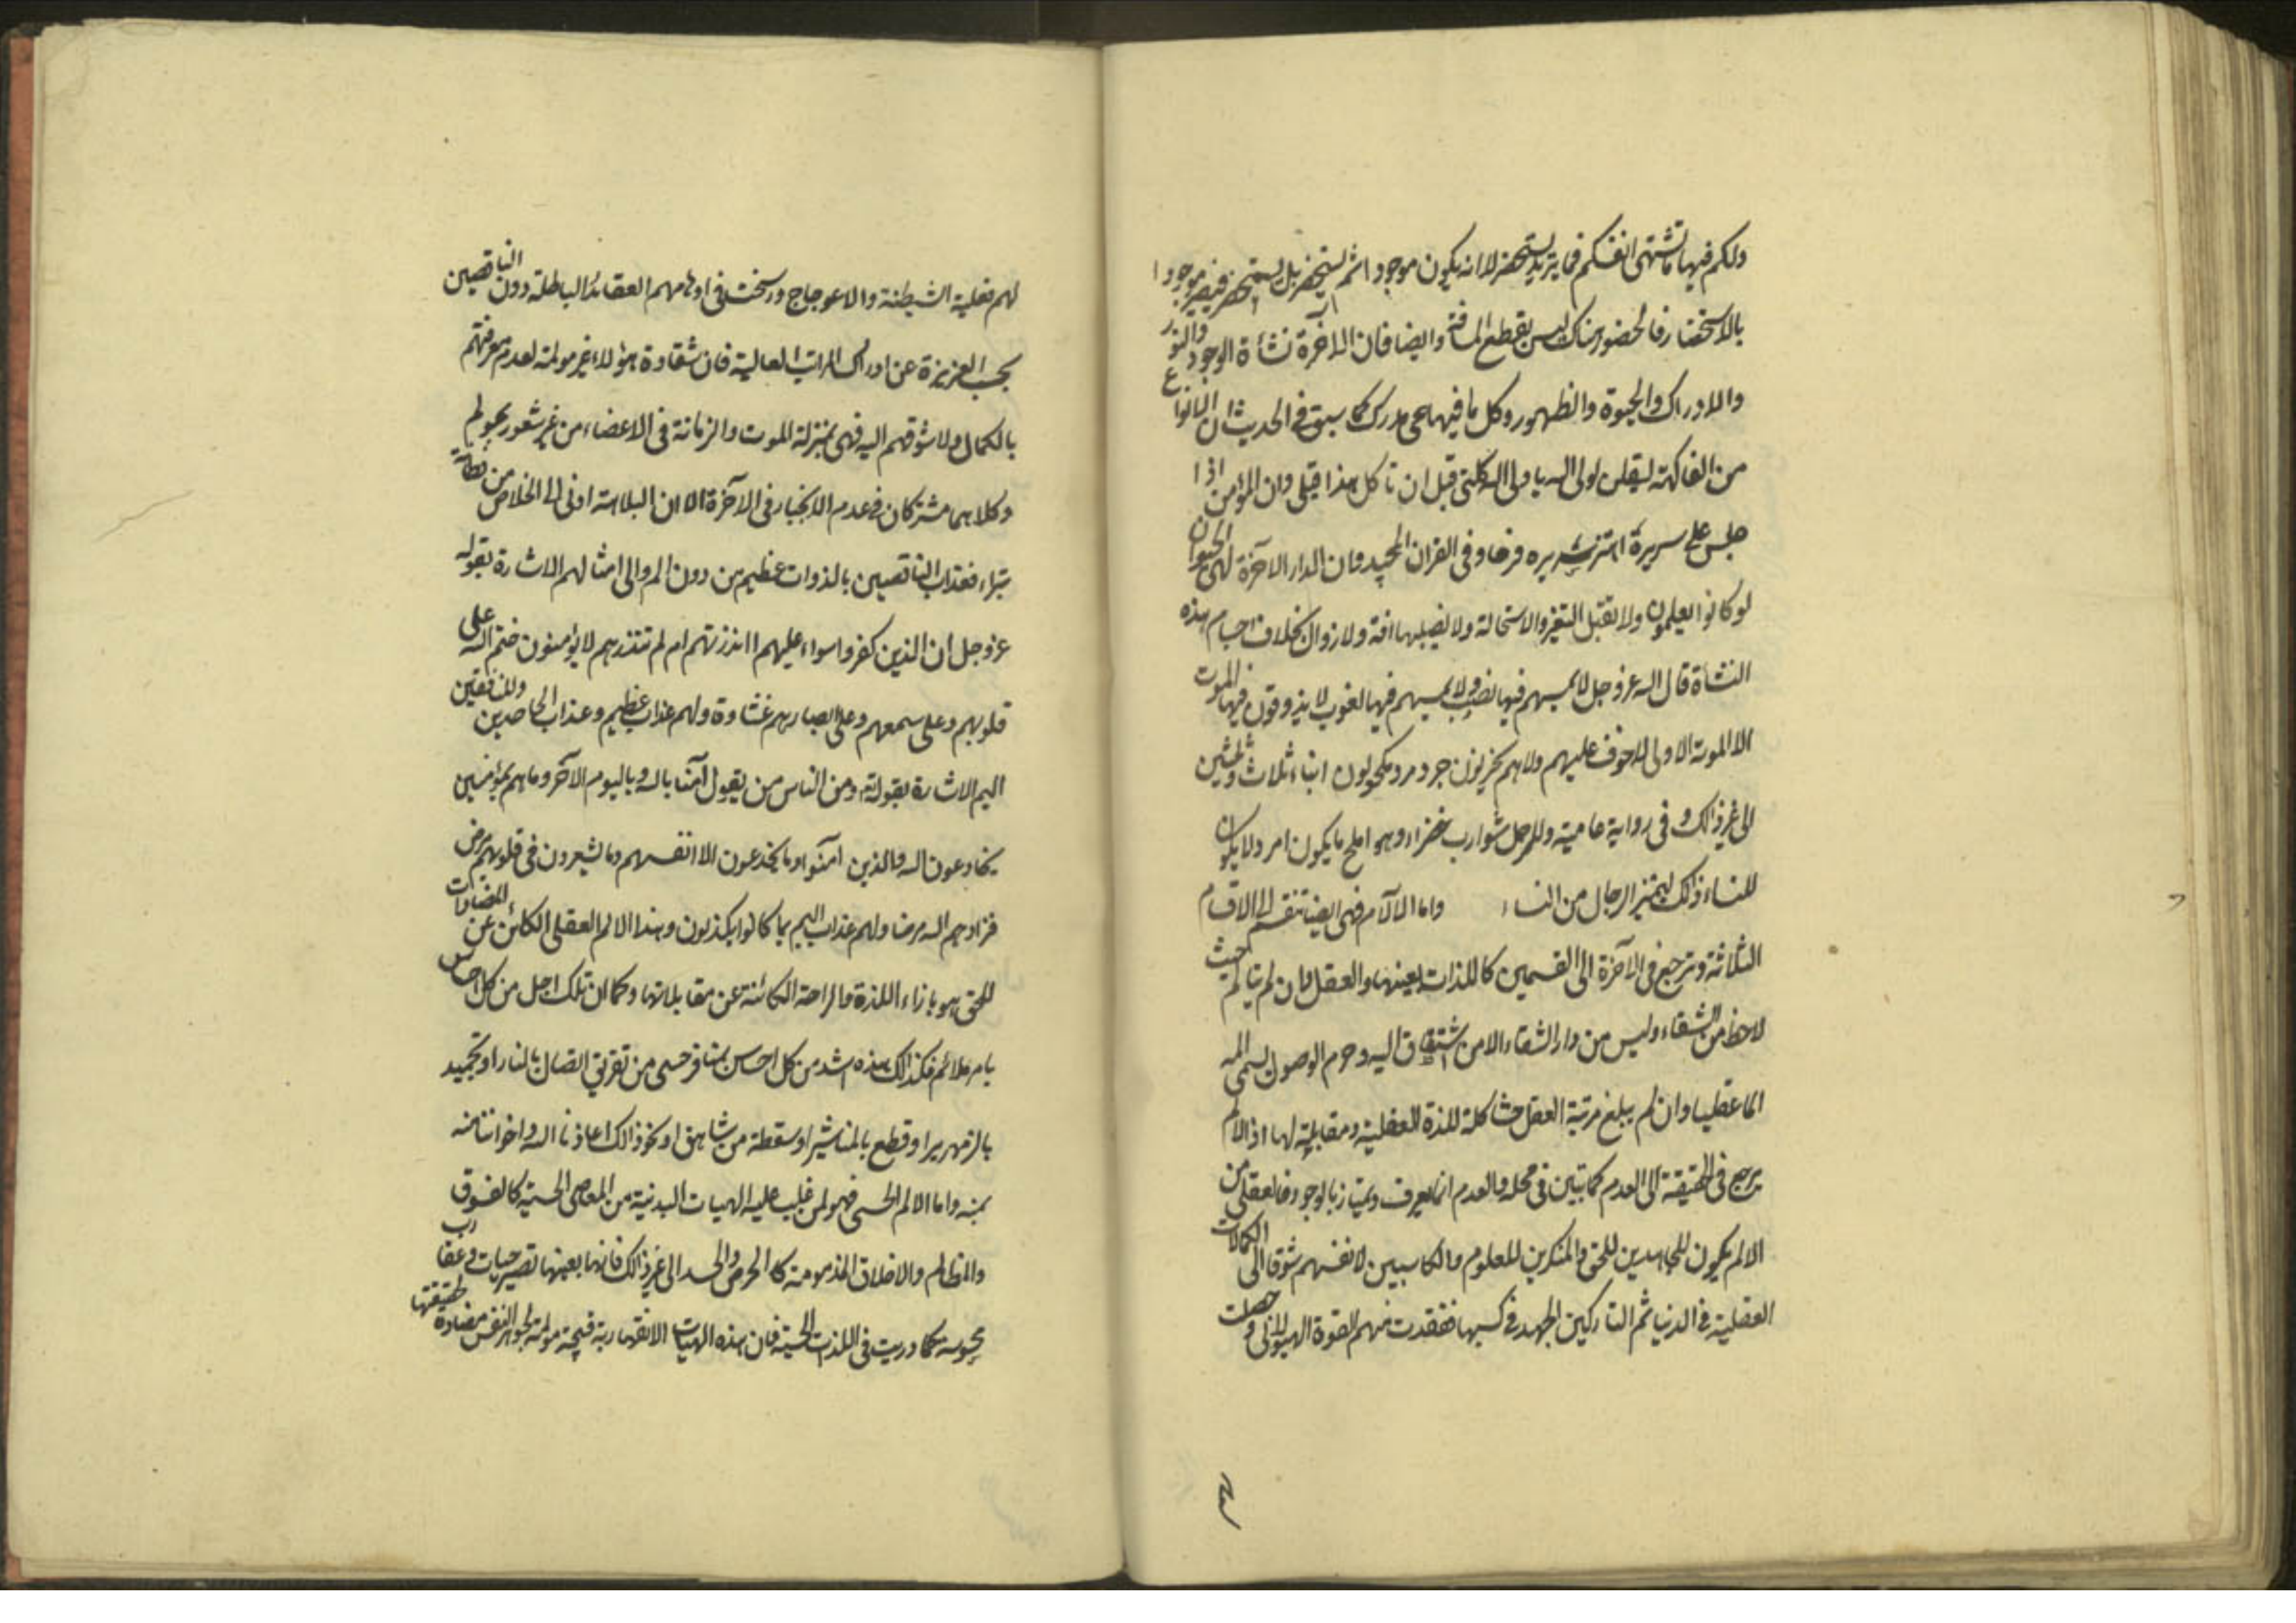 ولكم فيها ما تشتهى انفسكم فما يريد يستحضر لا انه يكون موجودا ثم يستحضر بل يستحضر فيصير موجودا
بالاستحضار فالحضور هناك ليس بقطع المسافة وايضا فان الآخرة نشأة الوجود والنور
والادراك والحيوة والظهور وكل ما فيها حى مدرك كما سبق فى الحديث ان الانواع
من الفاكهة ليقلن لولى الله يا ولى الله كلنى قبل ان تأكل هذا قبلى وان المؤمن اذا
جلس على سريره اهتز سريره فرحا وفى القران المجيد وان الدار الآخرة لهى الحيوان
لو كانوا يعلمون ولا تقبل التغير والاستحالة ولا تصيبها افة ولا زوال بخلاف اجسام هذه
النشأة قال الله عز وجل لا يمسهم فيها نصب ولا يمسهم فيها لغوب لا يذوقون فيها الموت
الا الموتة الاولى لا خوف عليهم ولا هم يحزنون جرد مرد مكحولون ابناء ثلاث وثلثين
الى غير ذلك وفى رواية عامية وللرجل شوارب خضراء وهو املح ما يكون امرد ولا يكون
للنساء ذلك ليتميز الرجال من النساء واما الآلام فهى ايضا تنقسم الى الاقسام
الثلاثة وترجع فى الآخرة الى القسمين كاللذات بعينها والعقل وان لم يتألم حيث
لاحظ من الشقاء وليس من دار الشقاء الا من اشتاق اليه وحرم الوصول يسمى المه
الما عقليا وان لم يبلغ مرتبة العقل مشاكلة للذة العقلية ومقابلة لها اذ الالم
يرجع فى الحقيقة الى العدم كما تبين فى محله والعدم انما يعرف ويمتاز بالوجود فالعقلى من
الالم يكون للجاهدين للحق والمنكرين للعلوم والكاسبين لانفسهم شوقا الى الكمالات
العقلية فى الدنيا ثم التاركين الجهد فى كسبها ففقدت منهم القوة الهيولانى وحصلت
لهم فعلية الشيطنة والاعوجاج ورسخت فى اوهامهم العقائد الباطلة دون الناقصين
بحسب الغريزة عن ادراك المراتب العالية فان شقاوة هؤلاء غير مولمة لعدم معرفتهم
بالكمال ولا شوقهم اليه فهى بمنزلة الموت والزمانة فى الاعضاء من غير شعور بمولم
وكلاهما مشتركان فى عدم الانجبار فى الآخرة الا ان البلاهة ادنى الى الخلاص من فطانة
بتراء فعذاب الناقصين بالذوات عظيم من دون الم والى امثالهم الاشارة بقوله
عز وجل ان الذين كفروا سواء عليهم ءانذرتهم ام لم تنذرهم لا يؤمنون ختم الله على
قلوبهم وعلى سمعهم وعلى ابصارهم غشاوة ولهم عذاب عظيم وعذاب الجاحدين والمنافقين
اليم الاشارة بقوله ومن الناس من يقول آمنا بالله وباليوم الآخر وما هم بمؤمنين
يخادعون الله والذين آمنوا وما يخدعون الا انفسهم وما يشعرون فى قلوبهم مرض
فزادهم الله مرضا ولهم عذاب اليم بما كانوا يكذبون وهذا الالم العقلى الكائن عن المضادات
للحق هو بازاء اللذة والراحة الكائنة عن مقابلاتها وكما ان تلك اجل من كل احساس
بامر ملائم فكذلك هذه اشد من كل احساس بمناف حسى من تفريق اتصال بالنار او تجميد
بالزمهرير او قطع بالمناشير او سقطة من شاهق او نحو ذلك اعاذنا الله واخواننا منه
بمنه واما الالم الحسى فهو لمن غلبت عليه الهيات البدنية من المعاصى الحسية كالفسوق
والمظالم والاخلاق المذمومة كالحرص والحسد الى غير ذلك فانها بعينها تصير حيات وعقارب
محسوسة كما دريت فى اللذات الحسية فان هذه الهيات الانقهارية قبيحة مولمة لجوهر النفس مضادة لحقيقتها